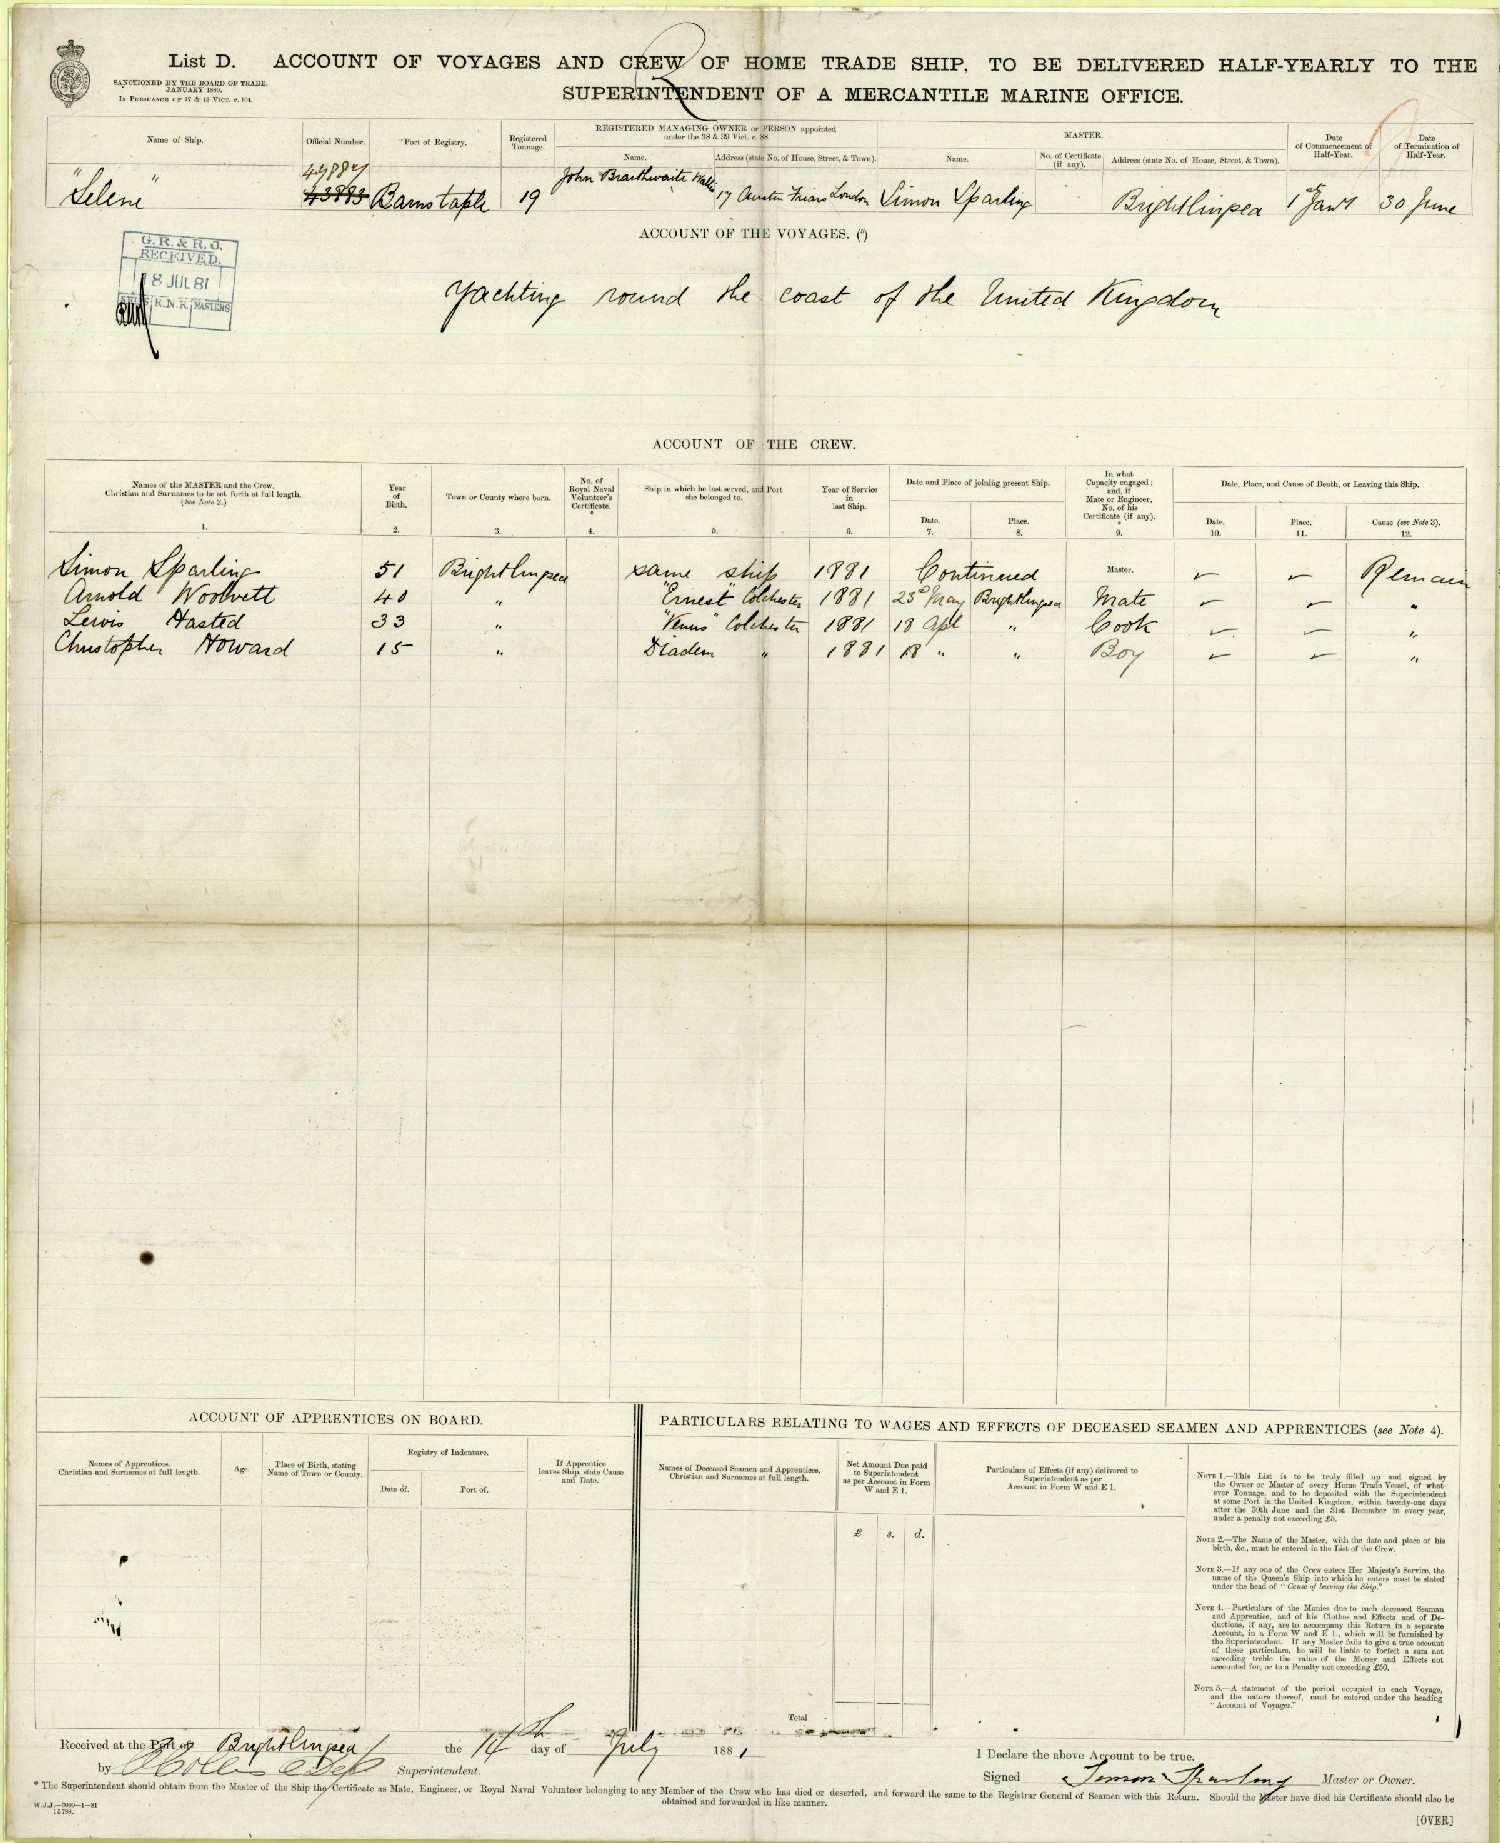 List D. ACCOUNT OF VOYAGES AND CREW OF HOME TRADE SHIP, TO BE DELIVERED HALF-YEARLY TO THE
SUPERINTENDENT OF A MERCANTILE MARINE OFFICE.
SANCTIONED BY THE BOARD OF TRADE.
JANUARY 1880.
IN PURSUANCE OF 17 & 18 VICT. c. 104.
Name of Ship.
Official Number.
Port of Registry.
Registered Tonnage.
REGISTERED MANAGING OWNER or PERSON appointed
under the 38 & 39 Vict. c. 88
Name.
Address (state No. of House, Street, & Town).
MASTER.
Name.
No. of Certificate (if any).
Address (state No. of House, Street, & Town).
Date of Commencement of Half-Year.
Date of Termination of Half-Year.
"Selene"
43883
Barnstaple
19
John Braithwaite
17 Austin Friars London
Simon Sparling
Brightlingsea
1st Jany
30 June
G. R. & R. O.
RECEIVED.
18 JUL 81
R.N.R.
MASTERS
ACCOUNT OF THE VOYAGES. (5)
Yachting round the coast of the United Kingdom
ACCOUNT OF THE CREW.
Names of the MASTER and the Crew,
Christian and Surnames to be set forth at full length.
(See Note 2.)
1.
Year of Birth.
2.
Town or County where born.
3.
No. of Royal Naval Volunteer's Certificate.
*
4.
Ship in which he last served, and Port she belonged to.
5.
Year of Service in last Ship.
6.
Date and Place of joining present Ship.
Date.
7.
Place.
8.
In what Capacity engaged; and, if Mate or Engineer, No. of his Certificate (if any).
*
9.
Date, Place, and Cause of Death, or Leaving this Ship.
Date.
10.
Place.
11.
Cause (see Note 3).
12.
Simon Sparling 51 Brightlingsea same ship 1881 Continued Master. Remain
Arnold Woolvett 40 " "Ernest" Colchester 1881 23d May Brightlingsea Mate "
Lewis Hasted 33 " "Venus" Colchester 1881 18 Apl " Cook "
Christopher Howard 15 " Diadem " 1881 18 " " Boy "
ACCOUNT OF APPRENTICES ON BOARD.
Names of Apprentices.
Christian and Surnames at full length.
Age.
Place of Birth, stating Name of Town or County.
Registry of Indenture.
Date of.
Port of.
If Apprentice leaves Ship, state Cause and Date.
PARTICULARS RELATING TO WAGES AND EFFECTS OF DECEASED SEAMEN AND APPRENTICES (see Note 4).
Names of Deceased Seamen and Apprentices,
Christian and Surnames at full length.
Net Amount Due paid to Superintendent as per Account in Form W and E 1.
£ s. d.
Particulars of Effects (if any) delivered to Superintendent as per Account in Form W and E 1.
Total
NOTE 1.—This List is to be truly filled up and signed by
the Owner or Master of every Home Trade Vessel, of what-
ever Tonnage, and to be deposited with the Superintendent
at some Port in the United Kingdom, within twenty-one days
after the 30th June and the 31st December in every year,
under a penalty not exceeding £5.
NOTE 2.—The Name of the Master, with the date and place of his
birth, &c., must be entered in the List of the Crew.
NOTE 3.—If any one of the Crew enters Her Majesty's Service, the
name of the Queen's Ship into which he enters must be stated
under the head of "Cause of leaving the Ship."
NOTE 4.—Particulars of the Monies due to each deceased Seaman
and Apprentice, and of his Clothes and Effects and of De-
ductions, if any, are to accompany this Return in a separate
Account, in a Form W and E 1., which will be furnished by
the Superintendent. If any Master fails to give a true account
of these particulars, he will be liable to forfeit a sum not
exceeding treble the value of the Money and Effects not
accounted for, or to a Penalty not exceeding £50.
NOTE 5.—A statement of the period occupied in each Voyage,
and the nature thereof, must be entered under the heading
"Account of Voyages."
Received at the Port of Brightlingsea the 14th day of July 1881
by Superintendent.
I Declare the above Account to be true.
Signed Simon Sparling Master or Owner.
* The Superintendent should obtain from the Master of the Ship the Certificate as Mate, Engineer, or Royal Naval Volunteer belonging to any Member of the Crew who has died or deserted, and forward the same to the Registrar General of Seamen with this Return. Should the Master have died his Certificate should also be
obtained and forwarded in like manner.
W.J.J.—3000—1—81
[OVER]